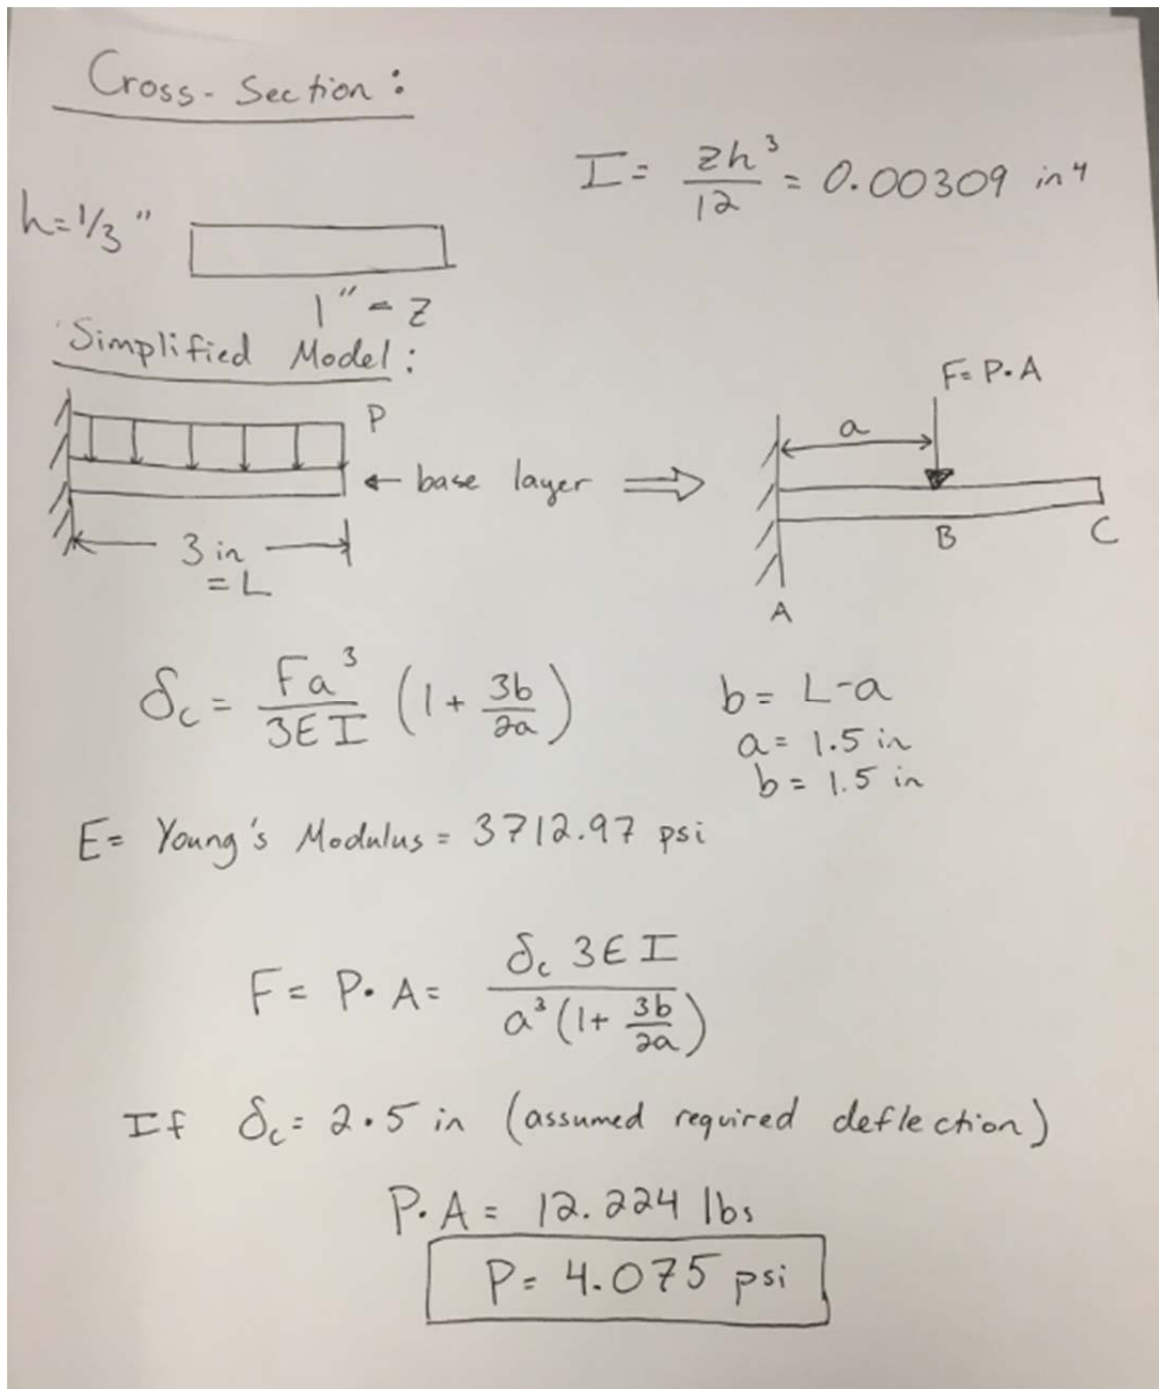 Cross-Section:
I = zh³/12 = 0.00309 in⁴
h=1/3"
1" = z
Simplified Model:
P
← base layer ⇒
3 in
= L
F = P•A
a
B
C
A
δc = Fa³/3EI (1 + 3b/2a)
b = L-a
a = 1.5 in
b = 1.5 in
E = Young's Modulus = 3712.97 psi
F = P• A = δc 3EI / a³(1 + 3b/2a)
If δc = 2.5 in (assumed required deflection)
P•A = 12.224 lbs
P = 4.075 psi